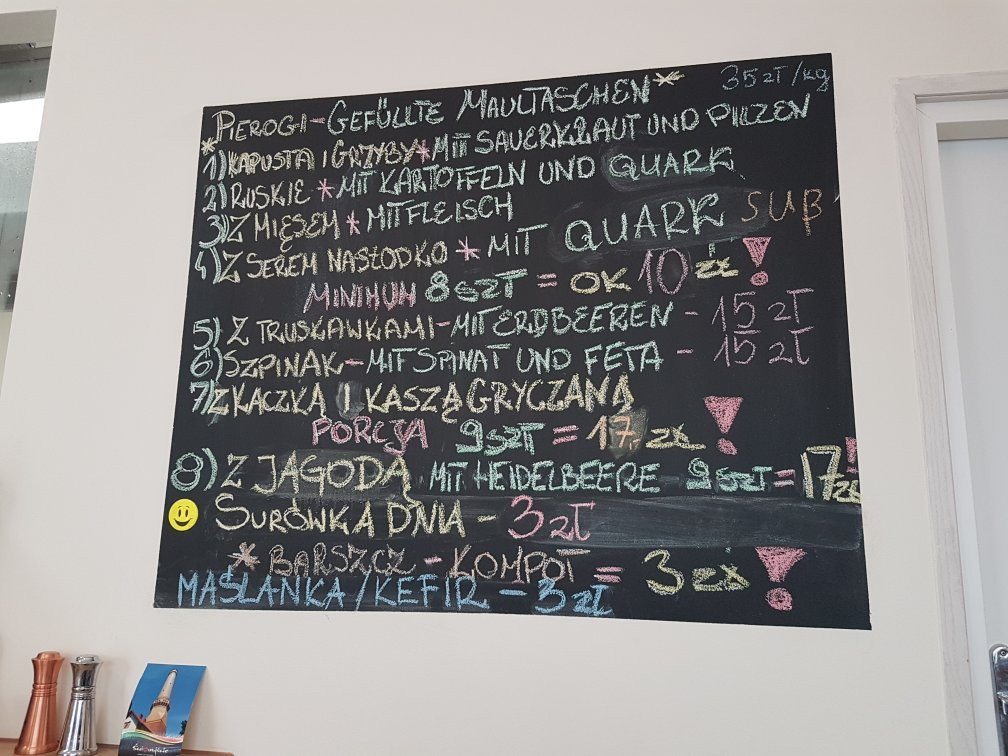 35 zł/kg
*PIEROGI-GEFÜLLTE MAULTASCHEN*
1) KAPUSTA I GRZYBY*MIT SAUERKRAUT UND PILZEN
2) RUSKIE *MIT KARTOFFELN UND QUARK
3) Z MIĘSEM * MIT FLEISCH
4) Z SEREM NASŁODKO * MIT QUARK SUß
MINIMUM 8 SZT = OK 10 zł!
5) Z TRUSKAWKAMI-MIT ERDBEEREN - 15 zł
6) SZPINAK-MIT SPINAT UND FETA - 15 zł
7) Z KACZKĄ I KASZĄ GRYCZANĄ
PORCJA 9 SZT = 17.zł!
8) Z JAGODĄ MIT HEIDELBEERE 9 SZT = 17 zł!
SURÓWKA DNIA - 3 zł
* BARSZCZ - KOMPOT = 3 zł!
MAŚLANKA/KEFIR - 3 zł